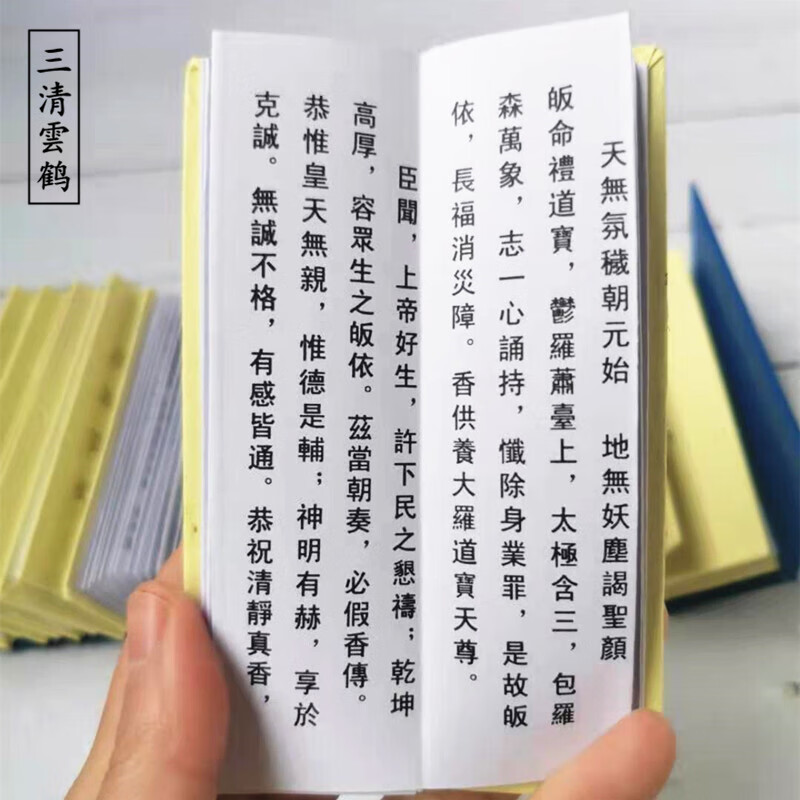 三清雲鹤
天無氛穢朝元始　地無妖塵謁聖顏
皈命禮道寶，鬱羅蕭臺上，太極含三，包羅
森萬象，志一心誦持，懺除身業罪，是故皈
依，長福消災障。香供養大羅道寶天尊。
臣聞，上帝好生，許下民之懇禱；乾坤
高厚，容眾生之皈依。茲當朝奏，必假香傳。
恭惟皇天無親，惟德是輔；神明有赫，享於
克誠。無誠不格，有感皆通。恭祝清靜真香，